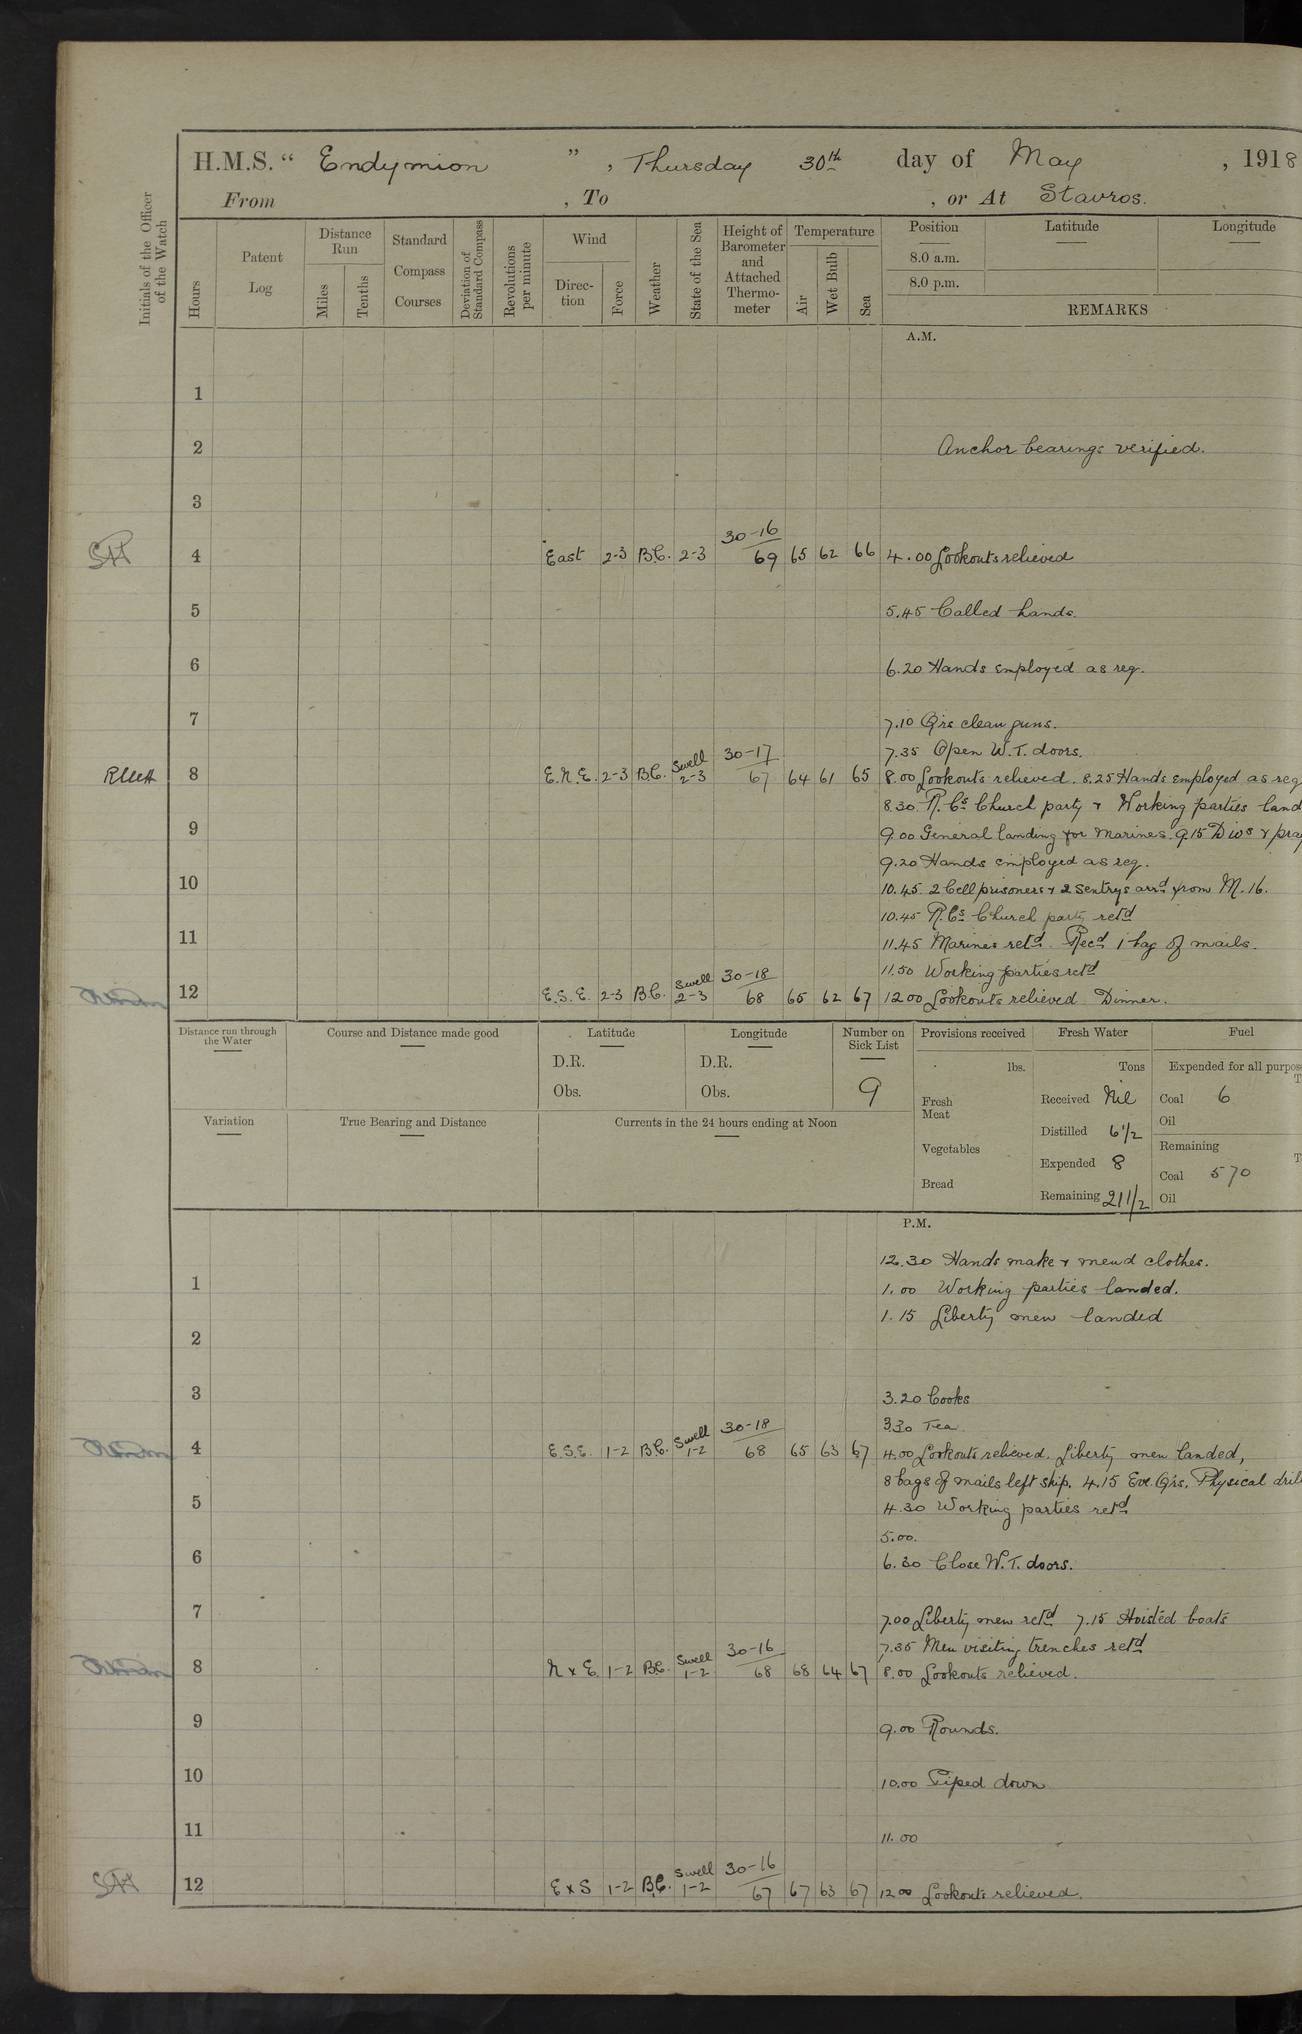 H.M.S. “ Endymion ” , Thursday 30th day of May , 1918
From , To , or At Stavros.
Initials of the Officer of the Watch
Hours
Patent Log
Distance Run
Miles
Tenths
Standard Compass Courses
Deviation of Standard Compass
Revolutions per minute
Wind
Direction
Force
Weather
State of the Sea
Height of Barometer and Attached Thermometer
Temperature
Air
Wet Bulb
Sea
Position
8.0 a.m.
8.0 p.m.
Latitude
Longitude
REMARKS
A.M.
1
2 Anchor bearings verified.
3
4 East 2-3 B.C. 2-3 30-16 69 65 62 66 4.00 Lookouts relieved
5 5.45 Called hands.
6 6.20 Hands employed as req.
7 7.10 Qrs clean guns.
7.35 Open W.T. doors.
8 E.N.E. 2-3 B.C. Swell 2-3 30-17 67 64 61 65 8.00 Lookouts relieved. 8.25 Hands employed as req
8.30 R.Cs Church party & Working parties land
9 9.00 General landing for Marines. 9.15 Divs & pray
9.20 Hands employed as req.
10 10.45 2 Cell prisoners & 2 Sentrys arrd from M.16.
10.45 R.Cs Church party retd
11 11.45 Marines retd. Recd 1 bag of mails.
11.50 Working parties retd
12 E.S.E. 2-3 B.C. Swell 2-3 30-18 68 65 62 67 12.00 Lookouts relieved Dinner.
Distance run through the Water
Course and Distance made good
Latitude
D.R.
Obs.
Longitude
D.R.
Obs.
Number on Sick List
9
Provisions received
lbs.
Fresh Meat
Vegetables
Bread
Fresh Water
Tons
Received Nil
Distilled 6 1/2
Expended 8
Remaining 211/2
Fuel
Expended for all purpos
Coal 6
Oil
Remaining
Coal 570
Oil
Variation
True Bearing and Distance
Currents in the 24 hours ending at Noon
P.M.
12.30 Hands make & mend clothes.
1 1.00 Working parties landed.
1.15 Liberty men landed
2
3 3.20 Cooks
3.30 Tea
4 E.S.E. 1-2 B.C. Swell 1-2 30-18 68 65 63 67 4.00 Lookouts relieved. Liberty men landed,
8 bags of mails left ship. 4.15 Eve. Qrs. Physical dril
5 4.30 Working parties retd
5.00.
6 6.30 Close W.T. doors.
7 7.00 Liberty men retd 7.15 Hoisted boats
7.35 Men visiting trenches retd
8 N x E 1-2 B.C. Swell 1-2 30-16 68 68 64 67 8.00 Lookouts relieved.
9 9.00 Rounds.
10 10.00 Piped down
11 11.00
12 E x S 1-2 B.C. Swell 1-2 30-16 67 67 63 67 12.00 Lookouts relieved.